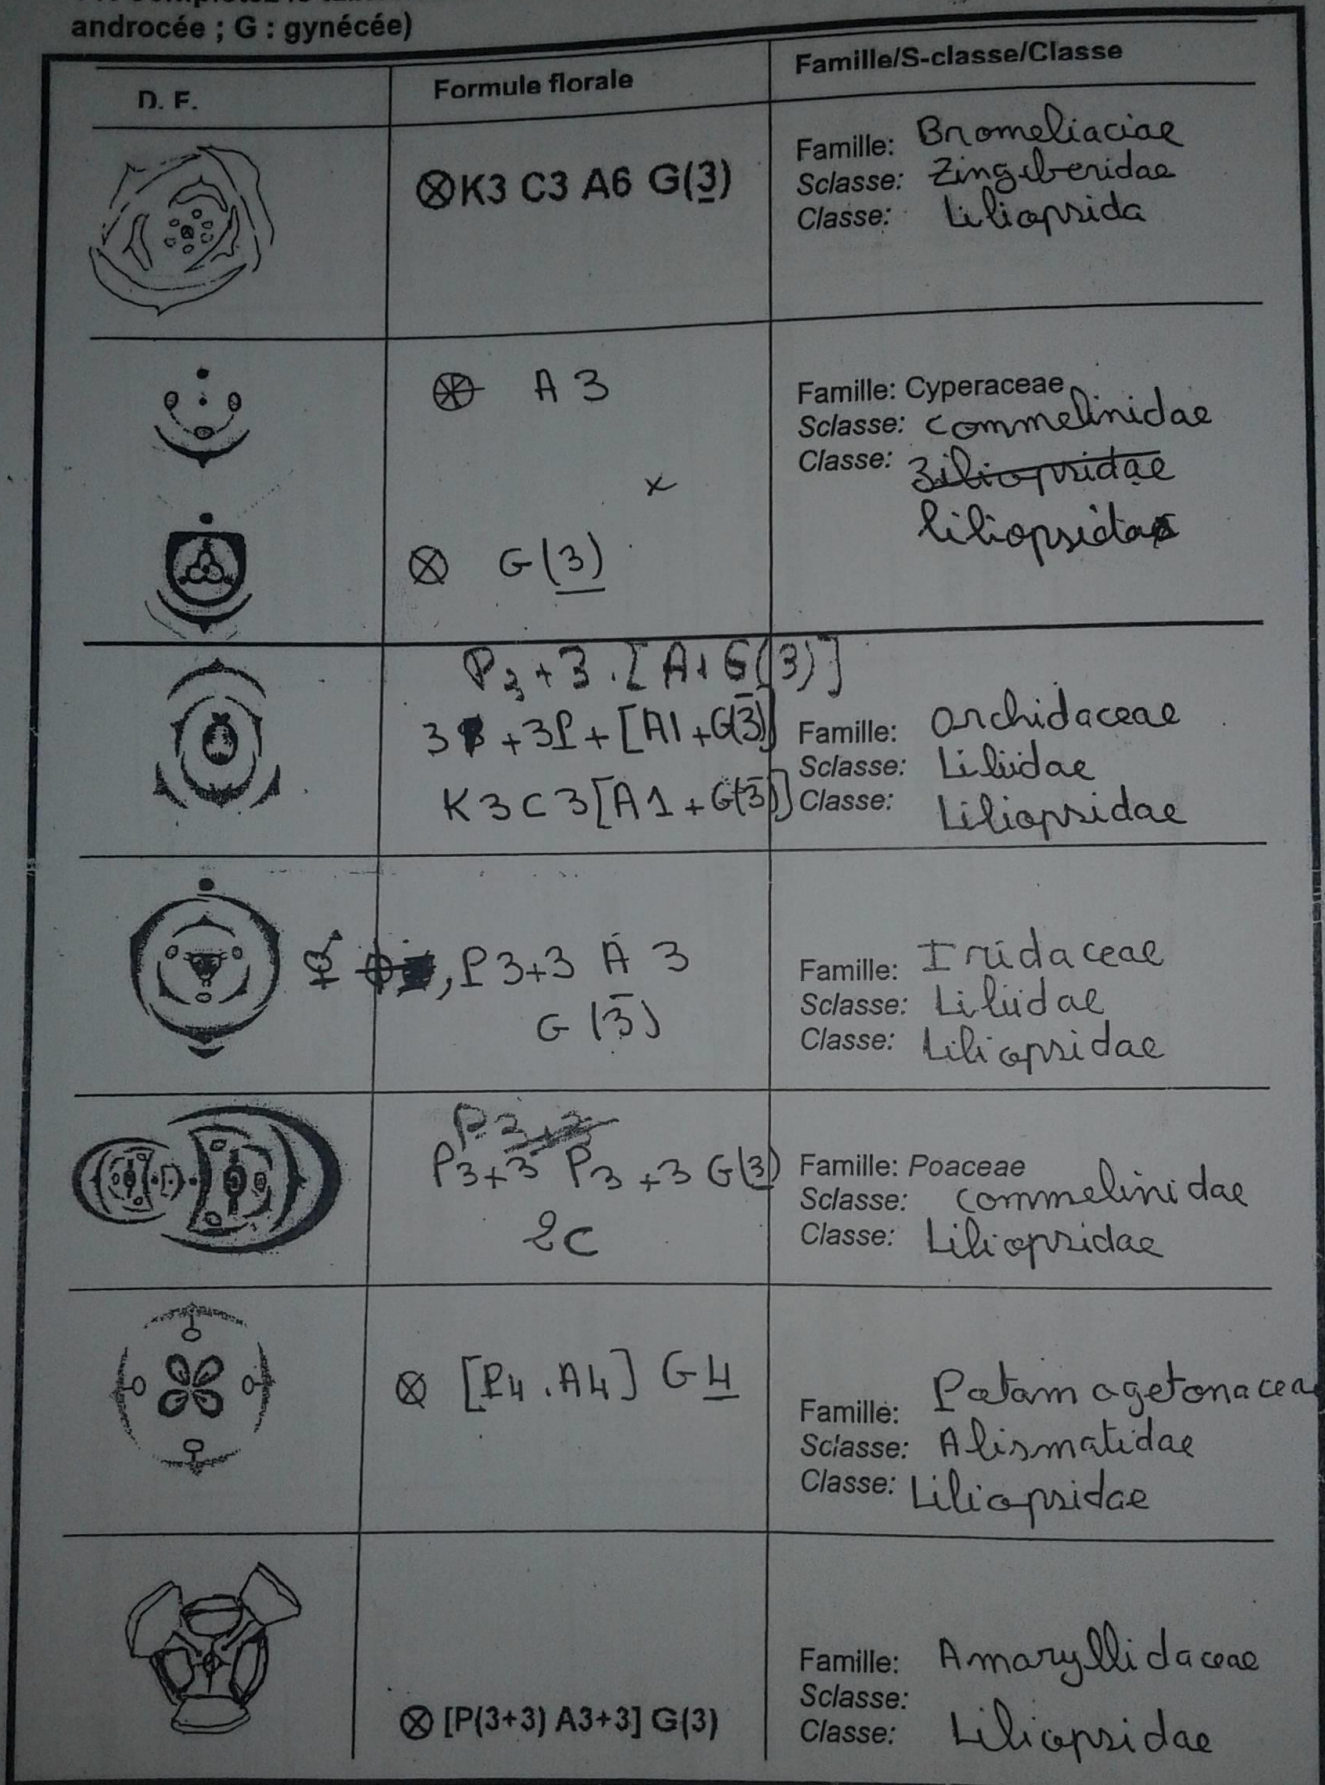 androcée ; G : gynécée)
D. F.
Formule florale
Famille/S-classe/Classe
⊗K3 C3 A6 G(3)
Famille: Bromeliaciae
Sclasse: Zingiberidae
Classe: Liliopsida
⊗ A 3
x
⊗ G(3)
Famille: Cyperaceae
Sclasse: Commelinidae
Classe: Ziliopsidae
liliopsida
P3+3.[A1 G(3)]
3 +3P+[A1+G(3)]
K3C3[A1+G(3)]
Famille: Orchidaceae
Sclasse: Liliidae
Classe: Liliopsidae
, P3+3 A 3
G (3)
Famille: Iridaceae
Sclasse: Liliidae
Classe: Liliopsidae
P3+3
P3+3 P3+3 G(3)
2C
Famille: Poaceae
Sclasse: Commelinidae
Classe: Liliopsidae
⊗ [P4.A4] G4
Famille: Potamogetonacea
Sclasse: Alismatidae
Classe: Liliopsidae
⊗ [P(3+3) A3+3] G(3)
Famille: Amaryllidaceae
Sclasse:
Classe: Liliopsidae